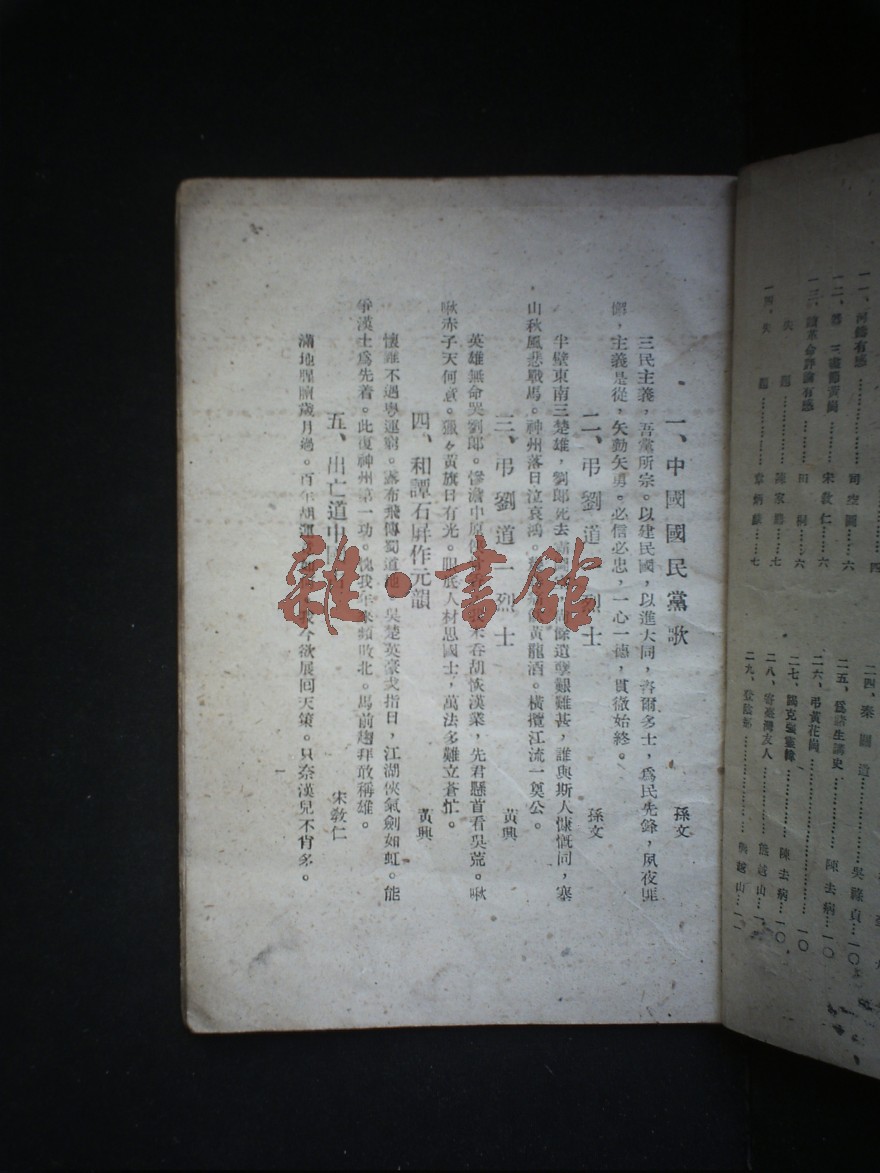 一一、有感……司空圖……六
宋教仁……六
一三、讀革命評論有感……田桐……六
失題……陳家鼎……七
一四、失題……章炳麟……七
二四、秦……吳祿貞……一〇
二五、爲諸生講史……陳去病……一〇
二六、弔黃花崗……一〇
二七、謁克強靈……陳去病……一〇
二八、寄臺灣友人……熊越山
二九、登……越山……一一
一、中國國民黨歌 孫文
三民主義，吾黨所宗。以建民國，以進大同，咨爾多士，爲民先鋒，夙夜匪
懈，主義是從，矢勤矢勇。必信必忠，一心一德，貫徹始終。
二、弔劉道一烈士 孫文
半壁東南三楚雄，劉郎死去餘遺孽艱難甚，誰與斯人慷慨同，塞
山秋風悲戰馬。神州落日泣哀鴻。黃龍酒。橫攬江流一奠公。
三、弔劉道一烈士 黃興
英雄無命哭劉郎。慘澹中原俠未吞胡恢漢業，先君懸首看吳荒。啾
啾赤子天何意。獵々黃旗日有光。眼底人材思國士，萬法多難立蒼茫。
四、和譚石屏作元韻 黃興
懷錐不遇粤運窮。露布飛傳蜀道通。吳楚英豪戈指日，江湖俠氣劍如虹。能
爭漢土爲先着。此復神州第一功。愧我年來頻敗北。馬前趨拜敢稱雄。
五、出亡道中 宋敎仁
滿地腥羶歲月過。百年胡運今欲展回天策。只奈漢兒不肯多。
一
雜·書館